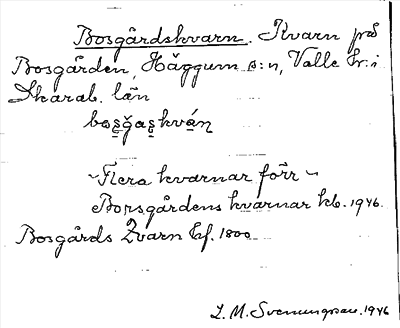 Bosgårdskvarn. Kvarn på
Bosgården, Häggum s:n, Valle hr: i
Skarab. län
bos̯g̯as̯kván
~Flera kvarnar förr~
Borsgårdens kvarnar kb. 1946.
Bosgårds Qvarn Ef. 1800
L. M. Svenungsson. 1946